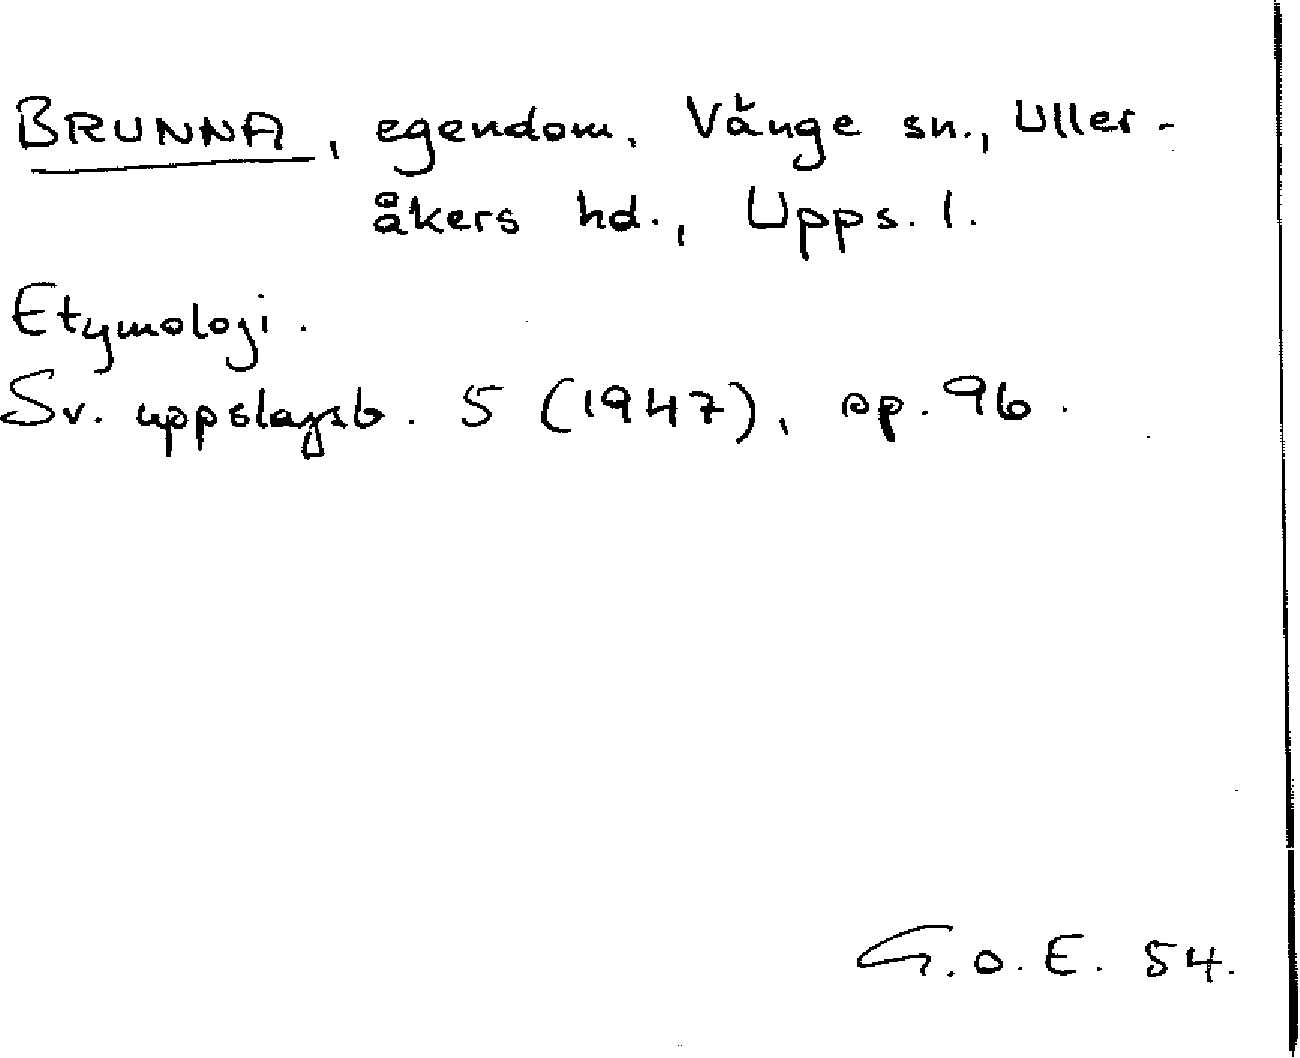 BRUNNA, egendom, Vänge sn., Uller-
åkers hd., Upps. l.
Etymologi.
Sv. uppslagsb. 5 (1947), sp. 96.
G.O.E. 54.